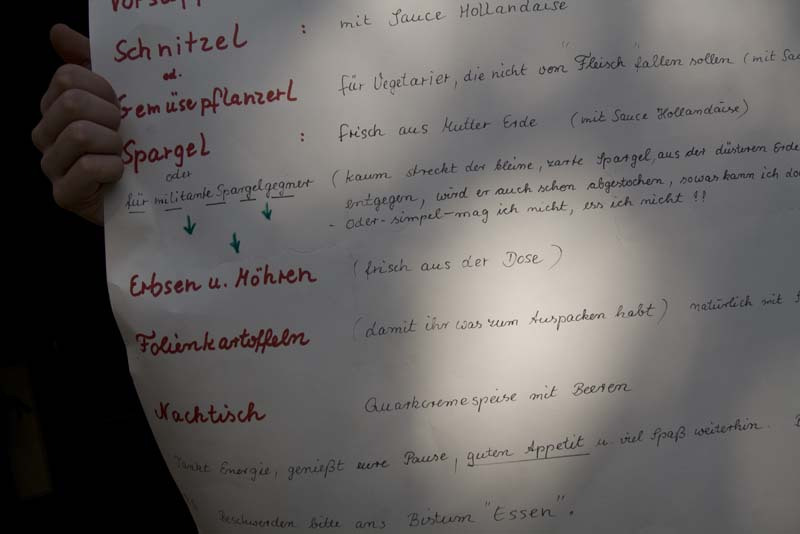 mit Sauce Hollandaise
Schnitzel :
od.
Gemüsepflanzerl für Vegetarier, die nicht vom "Fleisch" fallen sollen (mit
Spargel : frisch aus Mutter Erde (mit Sauce Hollandaise)
oder
für militante Spargelgegner (kaum streckt der kleine, zarte Spargel, aus der düsteren Erde
entgegen, wird er auch schon abgestochen, sowas kann ich
- oder - simpel - mag ich nicht, ess ich nicht!!
Erbsen u. Möhren (frisch aus der Dose)
Folienkartoffeln (damit ihr was zum Auspacken habt) natürlich mit
Nachtisch Quarkcremespeise mit Beeren
Tankt Energie, genießt eure Pause, guten Appetit u. viel Spaß weiterhin.
Beschwerden bitte ans Bistum "Essen".